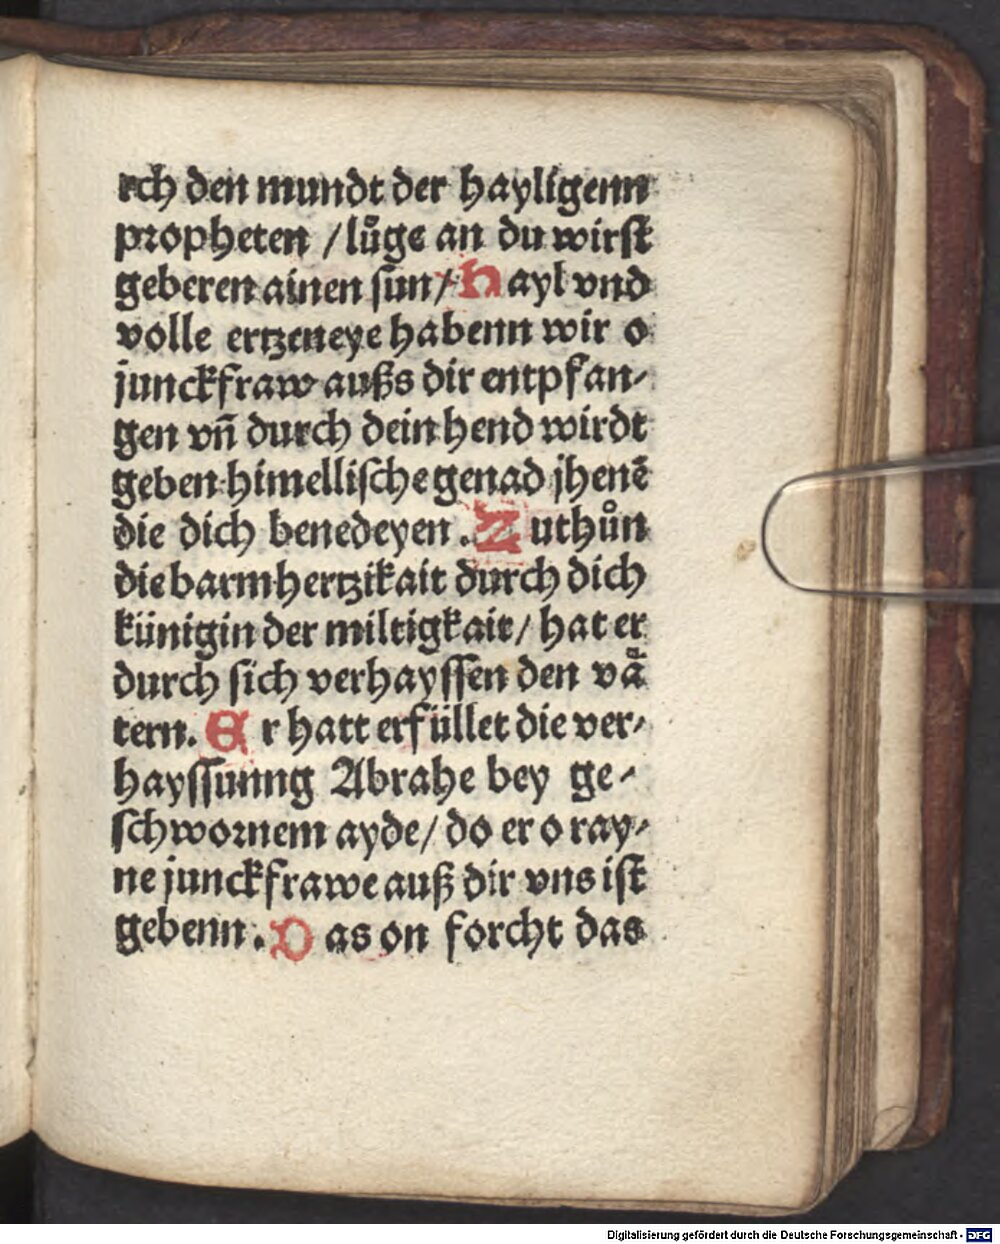 rch den mundt der hayligenn
propheten / lůge an du wirst
geberen ainen sun / Hayl vnd
volle ertzeneye habenn wir o
junckfraw außs dir entpfan-
gen vñ durch dein hend wirdt
geben himellische genad jhenē
die dich benedeyen . Zuthůn
die barmhertzikait durch dich
künigin der miltigkait / hat er
durch sich verhayssen den vä
tern. Er hatt erfüllet die ver-
hayssunng Abrahe bey ge-
schwornem ayde / do er o ray-
ne junckfrawe auß dir vns ist
gebenn . Das on forcht das
Digitalisierung gefördert durch die Deutsche Forschungsgemeinschaft - DFG